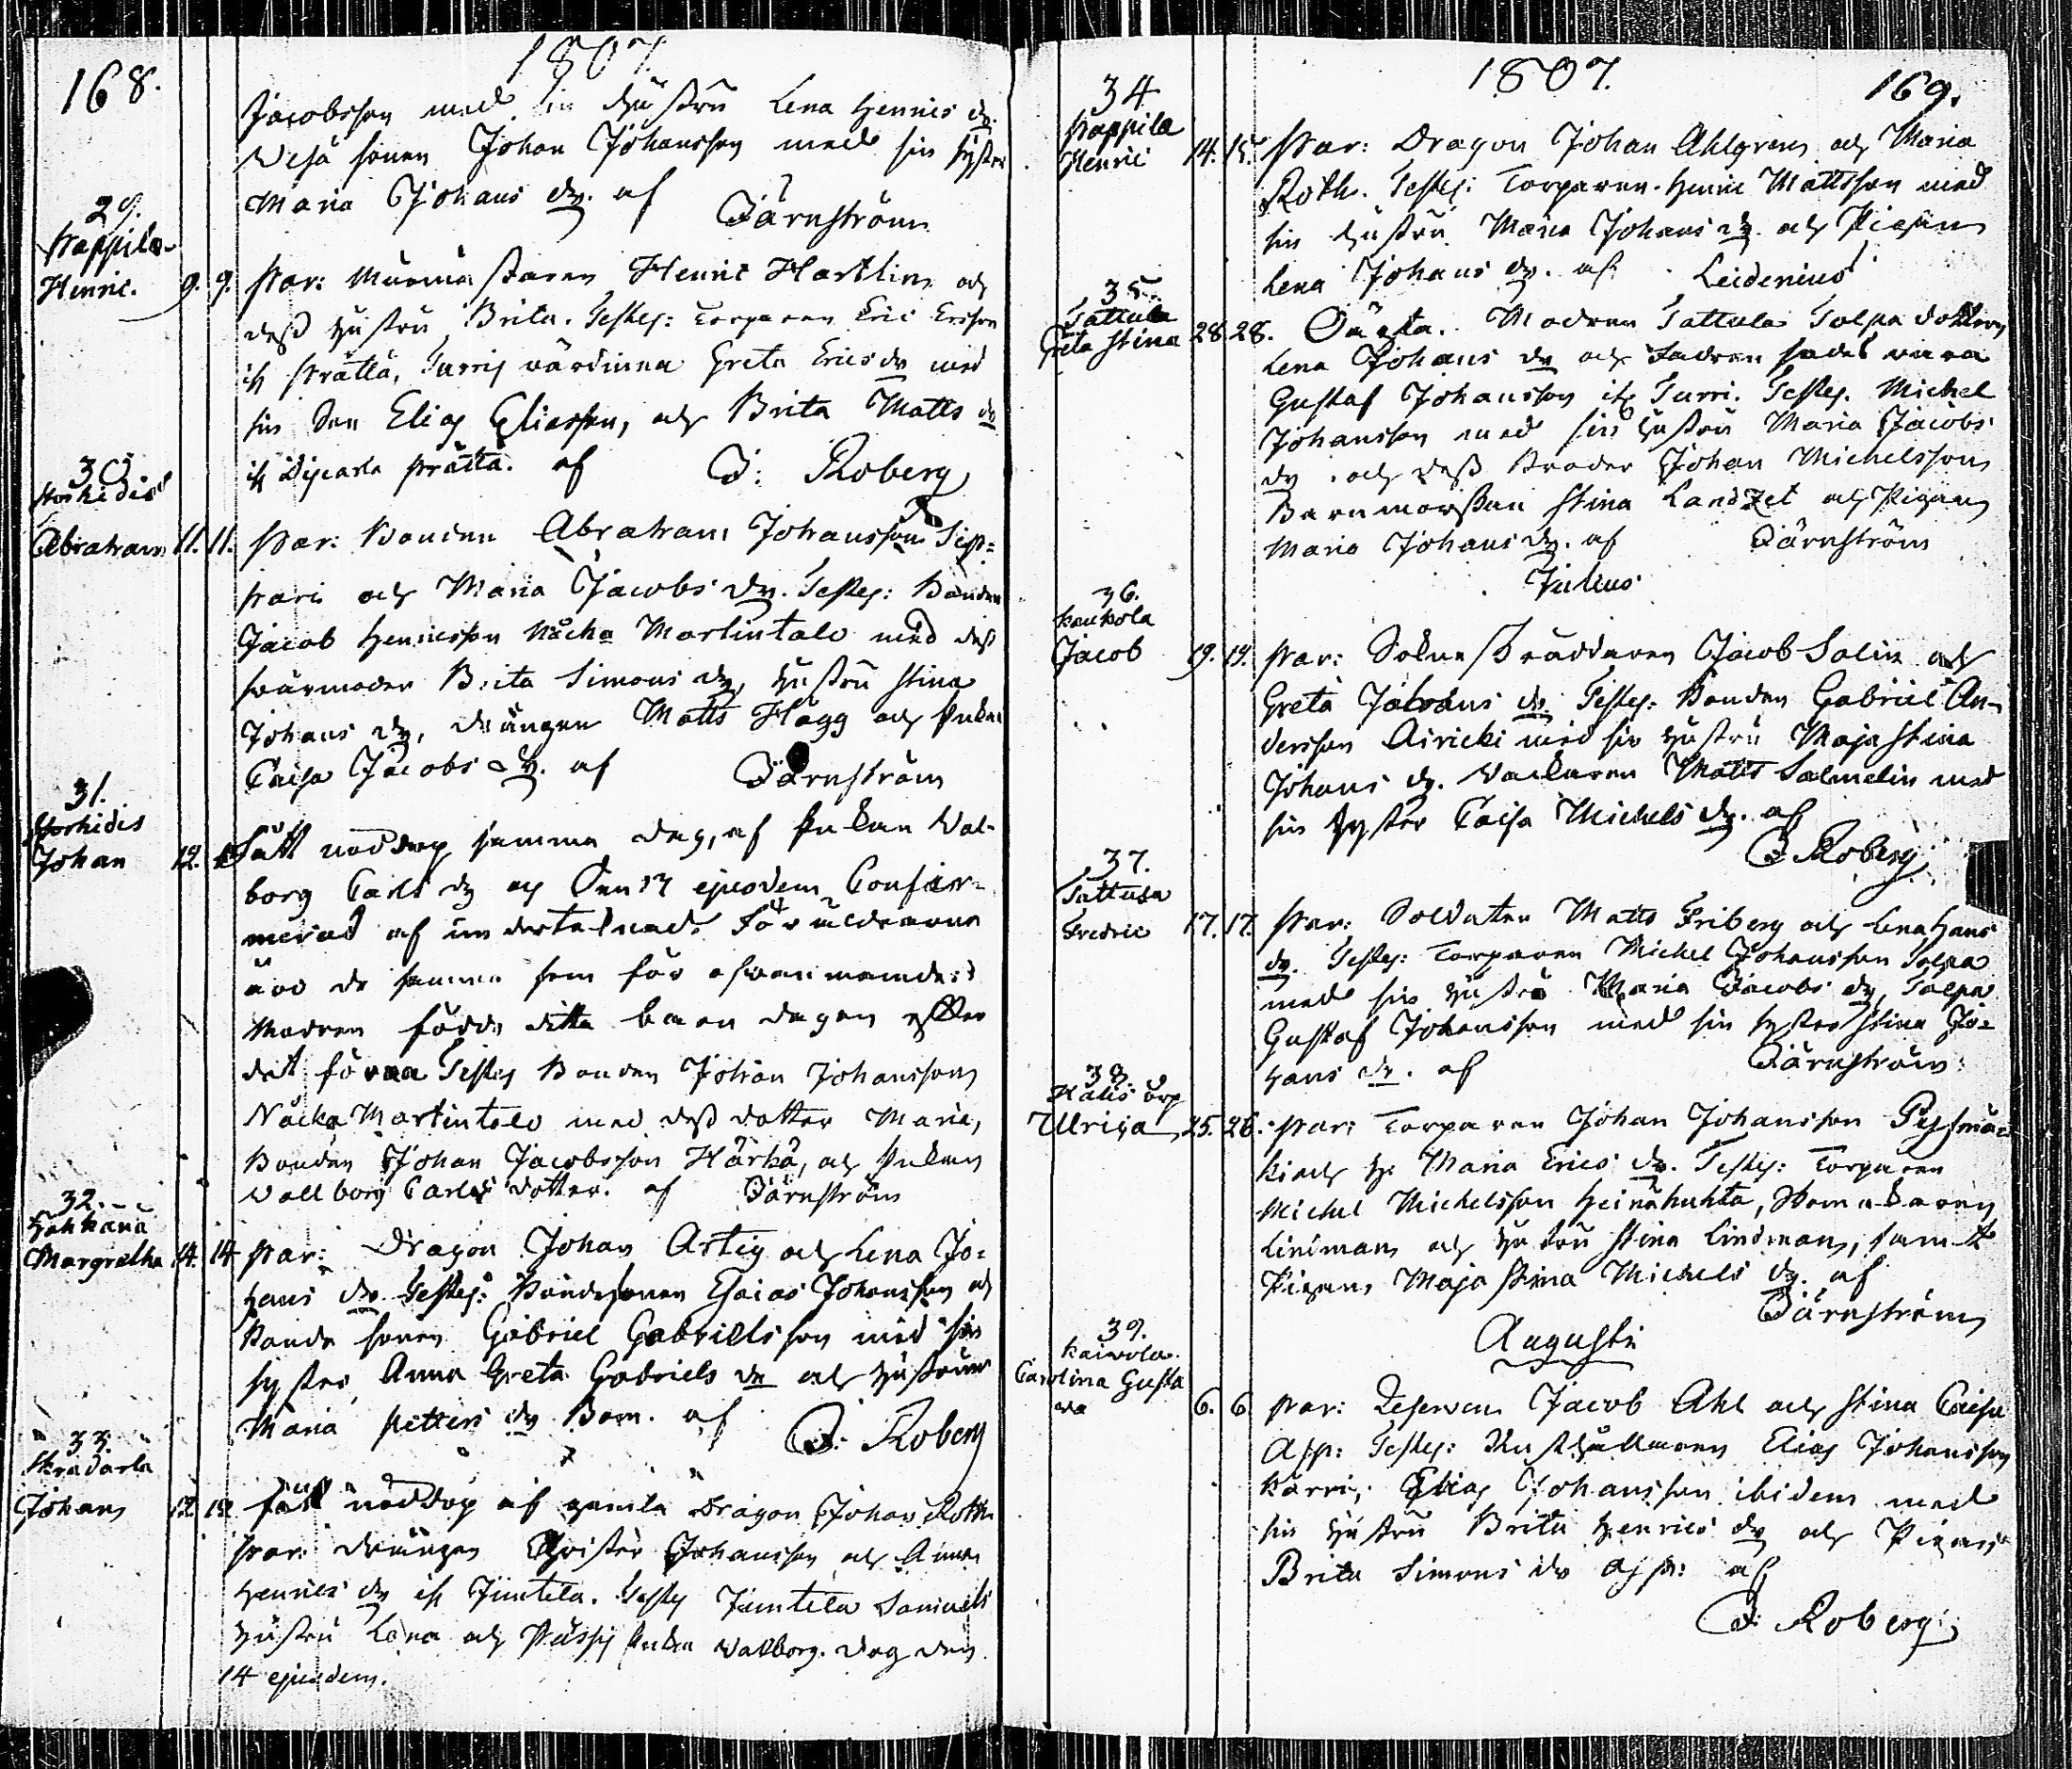 168.
1807.
Jacobsson med sin Hustru Lena Henrics dr.
sonen Johan Johansson med sin syster
Maria Johans dr. af Järnström
29.
Pappila
Henric. 9. 9. Par: Murmästaren Henric Hartlin och
dess hustru Brita. Testes: Torparen Eric Ersson
Prättä, Turris värdinna Greta Erics dr med
sin Son Elias Eliasson, och Brita Matts dr
prättä. af J: Roberg
30
Horhidis
Abraham 11. 11. Par: Bonden Abraham Johansson Sip=
pari och Maria Jacobs dr. Testes: Bonden
Jacob Henricsson Näckä Martintalo med dess
svärmoder Brita Simons dr, hustru Stina
Johans dr, drängen Matts Hägg och Enkan
Caisa Jacobs dr. af Järnström
31.
Horhidis
Johan 12. Fått nöddop samma dag, af Enkan Val-
borg Carls dr och den 17 ejusdem Confir-
merad af undertecknad. Föräldrarne
äro de samma som för ofvannämnde:
Modren födde detta barn dagen efter
det förra Testes Bonden Johan Johansson
Näckä Martintalo med dess dotter Maria,
Bonden Johan Jacobsson Härkä, och Enkan
Vallborg Carls dotter. af Järnström
32.
Hahkana
Margretha 14. 14 Par: Dragon Johan Artig och Lena Jo=
hans dr Testes: Bondesonen Esaias Johansson och
Bonde sonen Gabriel Gabrielsson med sin
syster Anna Greta Gabriels dr och hustrun
Maria Petters dr Bom. af J: Roberg
33.
Skradarla
Johan 12. 12. Fått nöddop af gamla Dragon Johan Roth
Par: drängen Christer Johansson och Anna
Henrics dr Juntila. Testes Juntila Samuels
hustru Lena och Enkan Valborg. dag den
14 ejusdem.
1807. 169.
34
Pappila
Henric 14. 15. Par: Dragon Johan Ahlgren och Maria
Roth. Testes: Torparen Henric Mattsson med
sin hustru Maria Johans dr och Pigan
Lena Johans dr. af Leidenius
35.
Tattula
Greta Stina 28 28. Oäkta. Modren Tattula Tolpa dottern
Lena Johans dr och Fadren sades vara
Gustaf Johansson Turri. Testes. Michel
Johansson med sin hustru Maria Jacobs
dr. och dess broder Johan Michelsson
Barnmorskan Stina Landzet och Pigan
Maria Johans dr. af Järnström
Julius
36.
Kaukola
Jacob 19. 19. Par: Sockneskräddaren Jacob Salin och
Greta dr Testes: Bonden Gabriel An-
dersson Airicki med sin hustru Maja Stina
Johans dr. Matts Salmelin med
sin syster Caisa Michels dr. af
J Roberg
37.
Tattula
Fredric 17. 17. Par: Soldaten Matts Friberg och Lena Hans
dr. Testes: Torparen Michel Johansson Tolpa
med sin hustru Maria Jacobs dr, Tolpa
Gustaf Johansson med sin syster Stina Jo=
hans dr. af Järnström
38.
Ulrica 25. 26. Par: Torparen Johan Johansson
och h: Maria Erics dr. Testes: Torparen
Michel Michelsson Heinähuhta, Skomakaren
Lindman och hustru Stina Lindman, samt
Pigan Maja Stina Michels dr. af
Järnström
Augusti
39.
Kaivola
Carolina Gusta
va 6. 6 Par: Reserven Jacob Ahl och Stina Caisa
Asp: Testes: Rusthållaren Elias Johansson
Karri, Elias Johansson ibidem med
sin hustru Brita Henrics dr och Pigan
Brita Simons dr af
J: Roberg